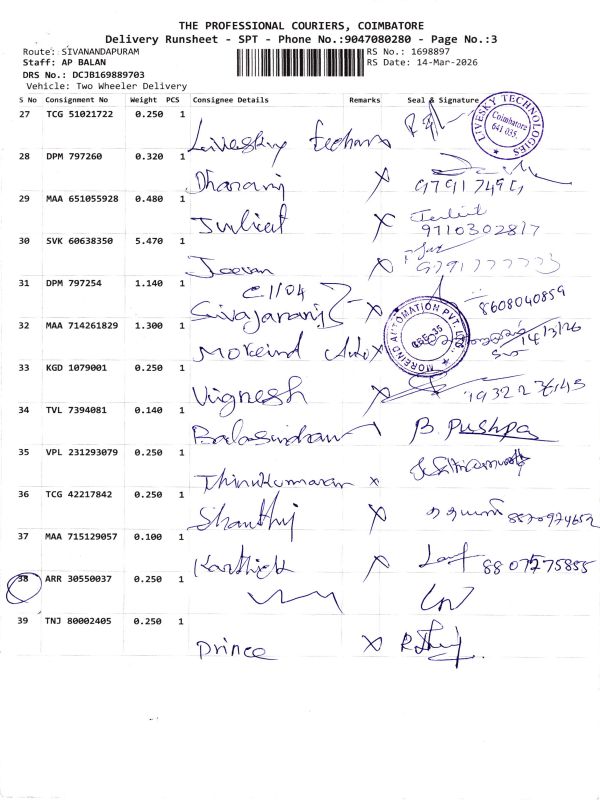 THE PROFESSIONAL COURIERS, COIMBATORE
Delivery Runsheet - SPT - Phone No.:9047080280 - Page No.:3
Route: SIVANANDAPURAM
RS No.: 1698897
Staff: AP BALAN
RS Date: 14-Mar-2026
DRS No.: DCJB169889703
Vehicle: Two Wheeler Delivery
S No Consignment No Weight PCS Consignee Details Remarks Seal & Signature
27 TCG 51021722 0.250 1
LIVESKY TECHNOLOGIES
Coimbatore
641 035.
28 DPM 797260 0.320 1
Dharani X
29 MAA 651055928 0.480 1
Juliet X Juliet
9710302817
30 SVK 60638350 5.470 1
Jeevan X
31 DPM 797254 1.140 1
C1104
Sivajarani X 8608040859
32 MAA 714261829 1.300 1
Moreind Auto X 14/3/26
MOREIND AUTOMATION PVT. LTD.
33 KGD 1079001 0.250 1
Vignesh X
34 TVL 7394081 0.140 1
B. Pushpa
35 VPL 231293079 0.250 1
Thirukumaran x
36 TCG 42217842 0.250 1
Shanthi X
37 MAA 715129057 0.100 1
Karthick X 8807775855
38 ARR 30550037 0.250 1
39 TNJ 80002405 0.250 1
Prince X